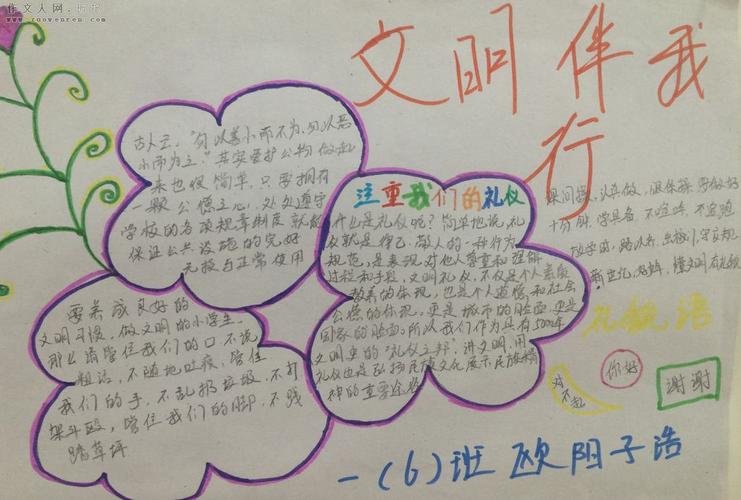 作文人网
www.zuowenren.com
文明伴我
行
古人云，“勿以善小而不为，勿以恶
小而为之。”其实爱护公物做起
来也很简单，只要拥有
一颗公德之心，处处遵守
学校的各项规章制度就能
保证公共设施的完好
无损与正常使用
要养成良好的
文明习惯，做文明的小学生，
那么请管住我们的口，不说
粗话，不随地吐痰，管住
我们的手，不乱扔垃圾，不打
架斗殴，管住我们的脚，不践
踏草坪
注重我们的礼仪
什么是礼仪呢？简单地说，礼
仪就是律己、敬人的一种行为
规范，是表现对他人尊重和理解
过程和手段。文明礼仪，不仅是个人素质
教养的体现，也是个人道德和社会
公德的体现。更是城市的脸面，更是
国家的脸面。所以我们作为具有5000年
文明史的“礼仪之邦”，讲文明，用
礼仪也是弘扬民族文化展示民族精
神的重要途径
课间操，认真做，眼保操，要做好
十分钟，学具备，不喧哗，不追跑
放学时，路队齐，出校门，守交规
懂文明有礼貌
礼貌语
对不起
你好
谢谢
一(6)班 欧阳子浩